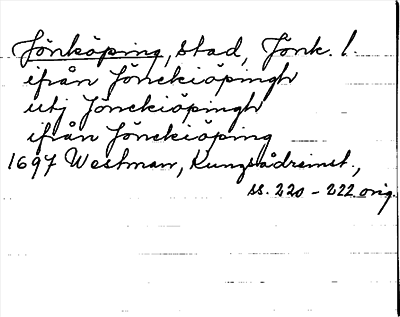 Jönköping, stad, Jönk. l.
ifrån Jönekiöpingh
utj Jönekiöpingh
ifrån Jönekiöping
1697 Westman,
ss. 220 - 222 orig.